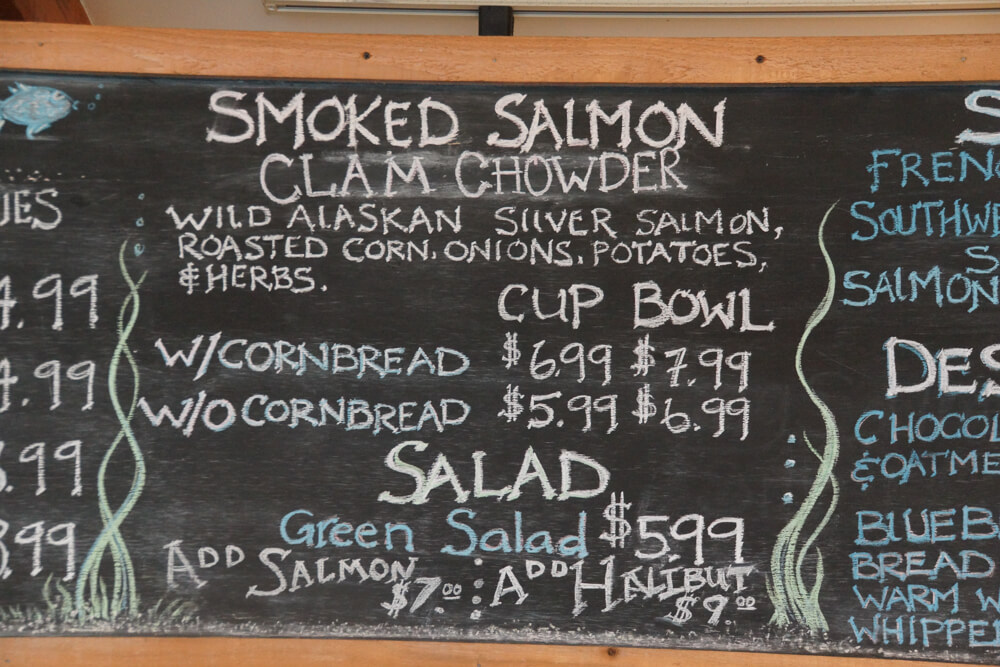 SMOKED SALMON
CLAM CHOWDER
WILD ALASKAN SILVER SALMON,
ROASTED CORN, ONIONS, POTATOES,
& HERBS.
CUP BOWL
W/CORNBREAD $6.99 $7.99
W/O CORNBREAD $5.99 $6.99
SALAD
Green Salad $5.99
ADD SALMON $7.00 : ADD HALIBUT $9.00
.99
.99
.99
.99
SALMON
CHOCOL
& OATME
BLUEB
BREAD
WARM W
WHIPPE